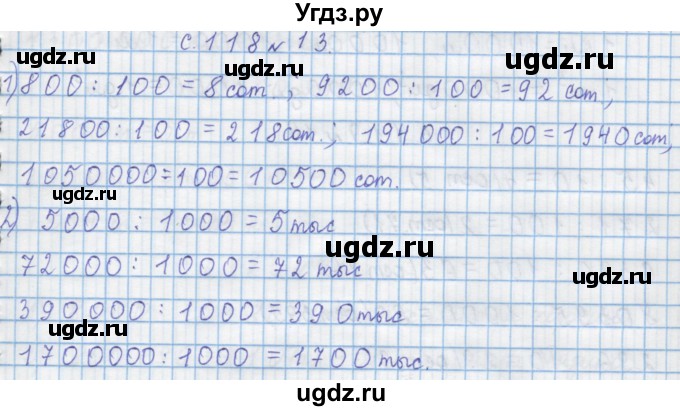 Угдз.ру
с. 118 № 13.
ugdz.ru ugdz.ru ugdz.ru
1) 800 : 100 = 8 сот. ; 9200 : 100 = 92 сот,
21800 : 100 = 218 сот. ; 194 000 : 100 = 1940 сот,
1050000 = 100 = 10500 сот.
2) 5000 : 1000 = 5 тыс
ugdz.ru
72000 : 1000 = 72 тыс
ugdz.ru ugdz.ru
390 000 : 1000 = 390 тыс
ugdz.ru ugdz.ru
1700000 : 1000 = 1700 тыс.
ugdz.ru